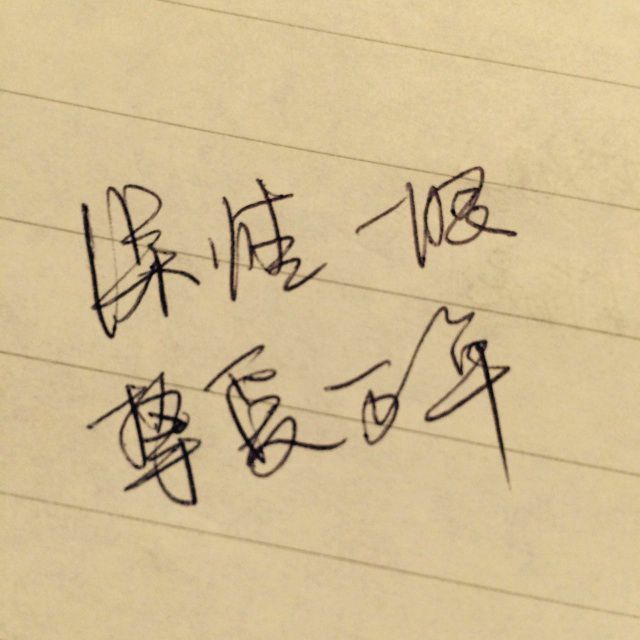 深情一眼
挚爱万年